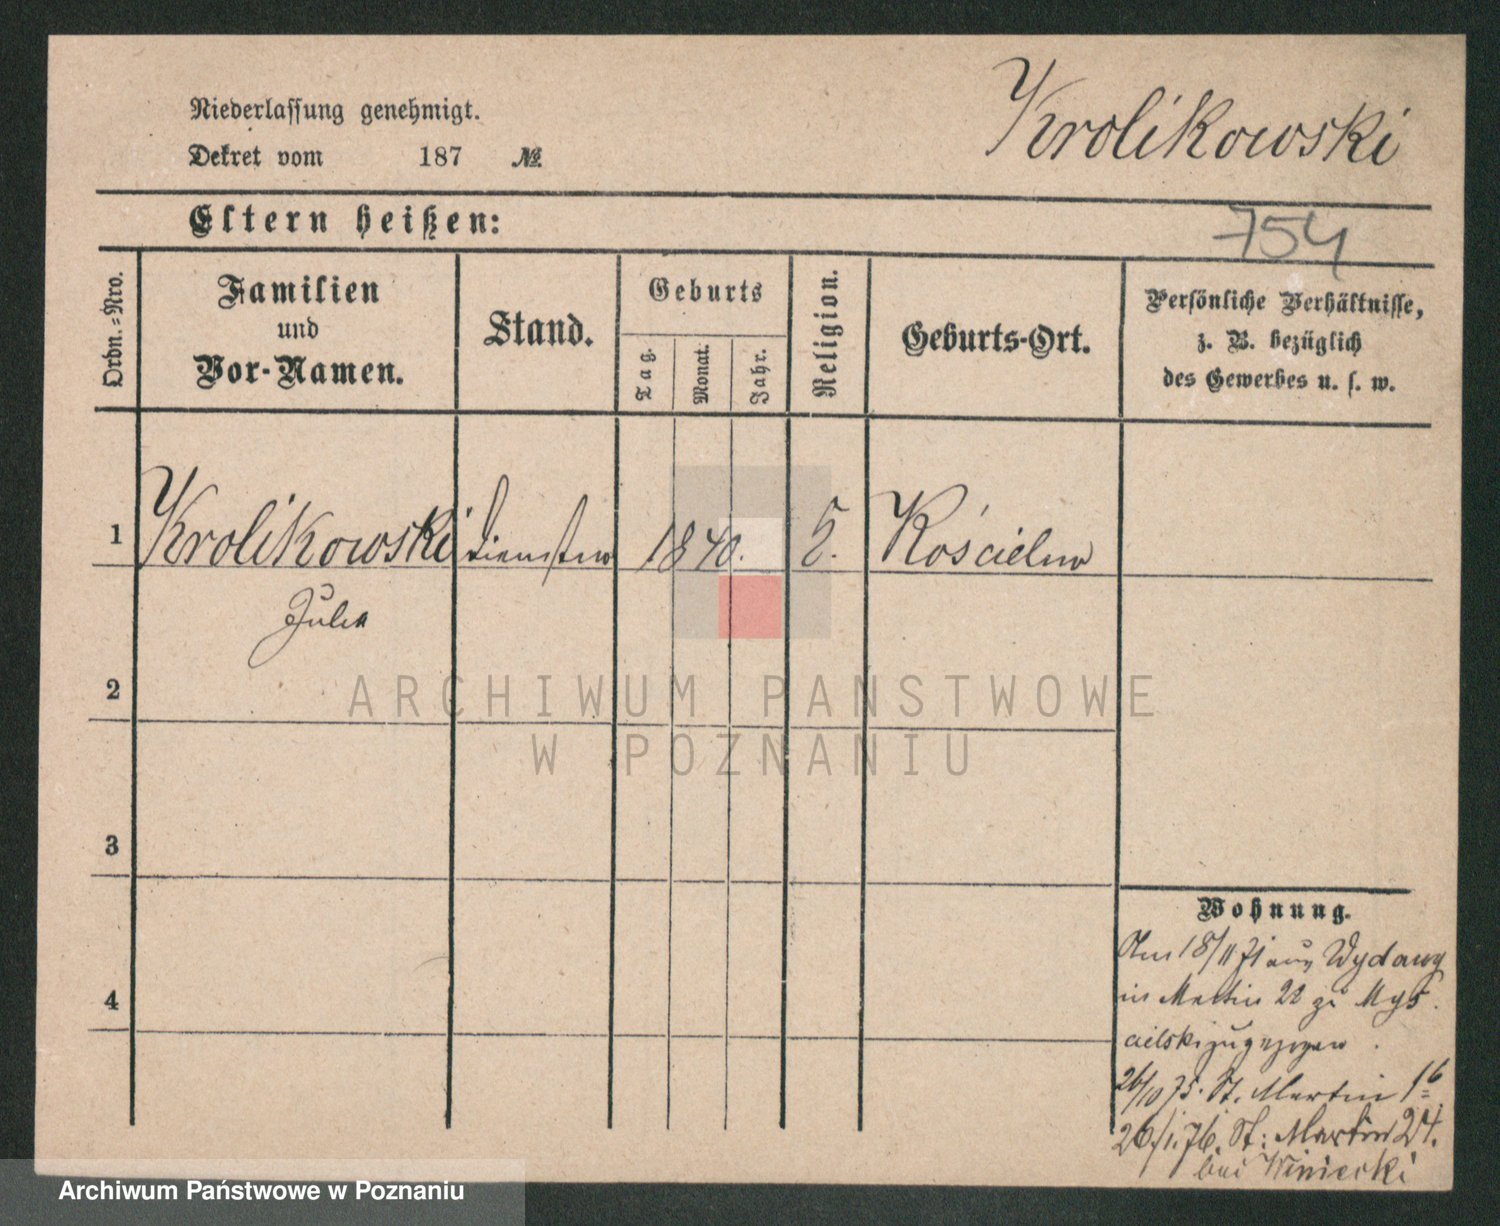 Krolikowski
Niederlassung genehmigt.
Dekret vom 187 №
754
Eltern heißen:
Ordn.-Nro.
Familien
und
Vor-Namen.
Stand.
Geburts
Tag.
Monat.
Jahr.
Religion.
Geburts-Ort.
Persönliche Verhältnisse,
z. B. bezüglich
des Gewerbes u. s. w.
1 Krolikowski 1840. Kościelno
2
3
4
Wohnung.
Am 18/11 71 aus
in Martin 22 zu Mys
cielski zugezogen.
26/10 75. St. Martin 16
26/1. 76. St. Martin 24.
bei Winiecki
ARCHIWUM PAŃSTWOWE
W POZNANIU
Archiwum Państwowe w Poznaniu